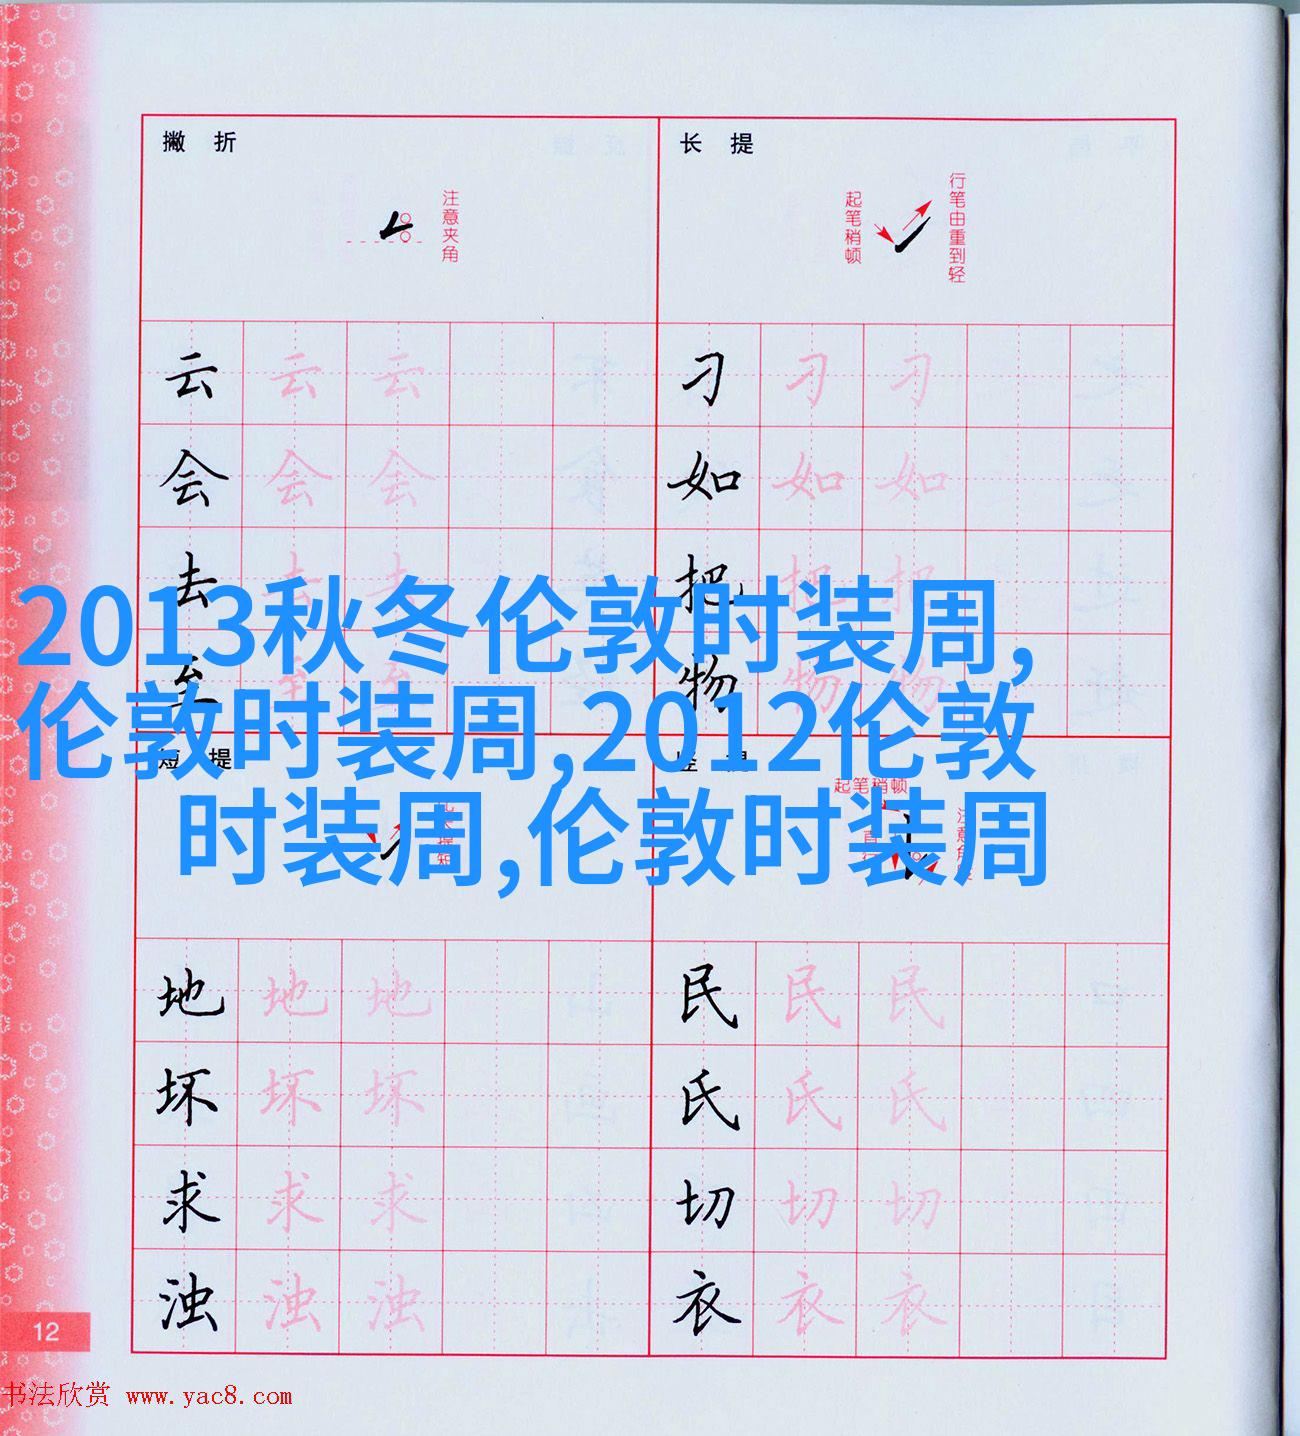 撇 折
注意夹角
长 提
起笔稍顿
行笔由重到轻
云 云 云
会 会 会
去 去 去
至 至 至
刁 刁 刁
如 如 如
把 把 把
物 物 物
2013秋冬伦敦时装周,
伦敦时装周,2012伦敦
时装周,伦敦时装周
短 提
竖 提
起笔稍顿
地 地 地
坏 坏 坏
求 求 求
浊 浊 浊
民 民 民
氏 氏 氏
切 切 切
衣 衣 衣
12
书法欣赏 www.yac8.com